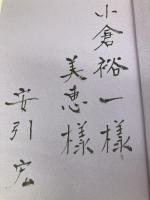 小倉裕一様
美恵様
安引宏